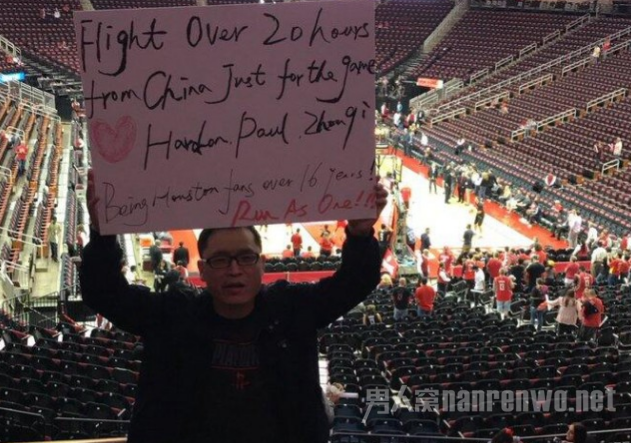 Flight Over 20 hours
from China Just for the game
Harden. Paul. Zhou Qi
Being Houston fans over 16 years!
Run As One!!!
男人窝nanrenwo.net